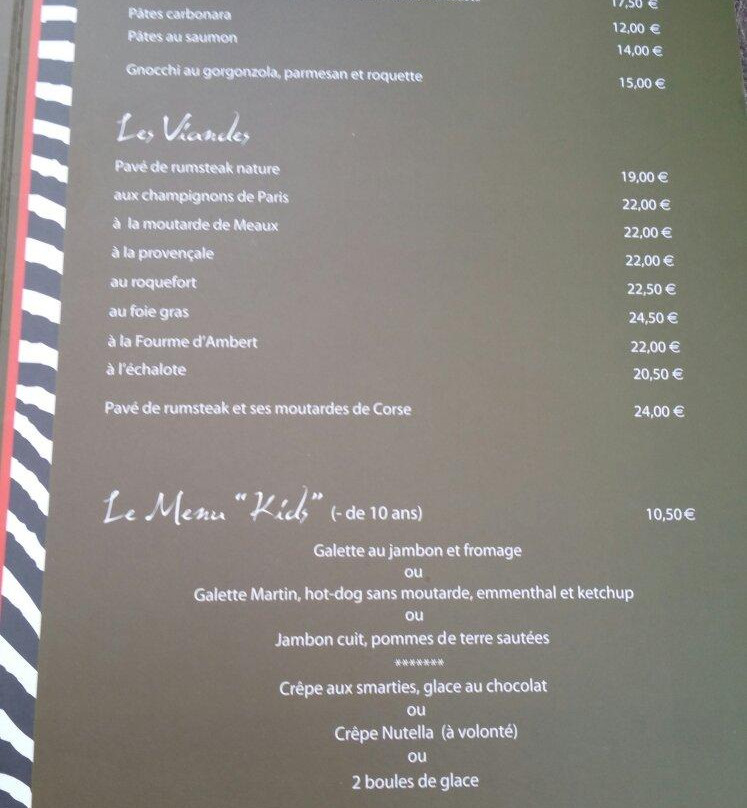 17,50 €
Pâtes carbonara 12,00 €
Pâtes au saumon 14,00 €
Gnocchi au gorgonzola, parmesan et roquette 15,00 €
Les Viandes
Pavé de rumsteak nature 19,00 €
aux champignons de Paris 22,00 €
à la moutarde de Meaux 22,00 €
à la provençale 22,00 €
au roquefort 22,50 €
au foie gras 24,50 €
à la Fourme d'Ambert 22,00 €
à l'échalote 20,50 €
Pavé de rumsteak et ses moutardes de Corse 24,00 €
Le Menu "Kids" (- de 10 ans) 10,50€
Galette au jambon et fromage
ou
Galette Martin, hot-dog sans moutarde, emmenthal et ketchup
ou
Jambon cuit, pommes de terre sautées
*******
Crêpe aux smarties, glace au chocolat
ou
Crêpe Nutella (à volonté)
ou
2 boules de glace